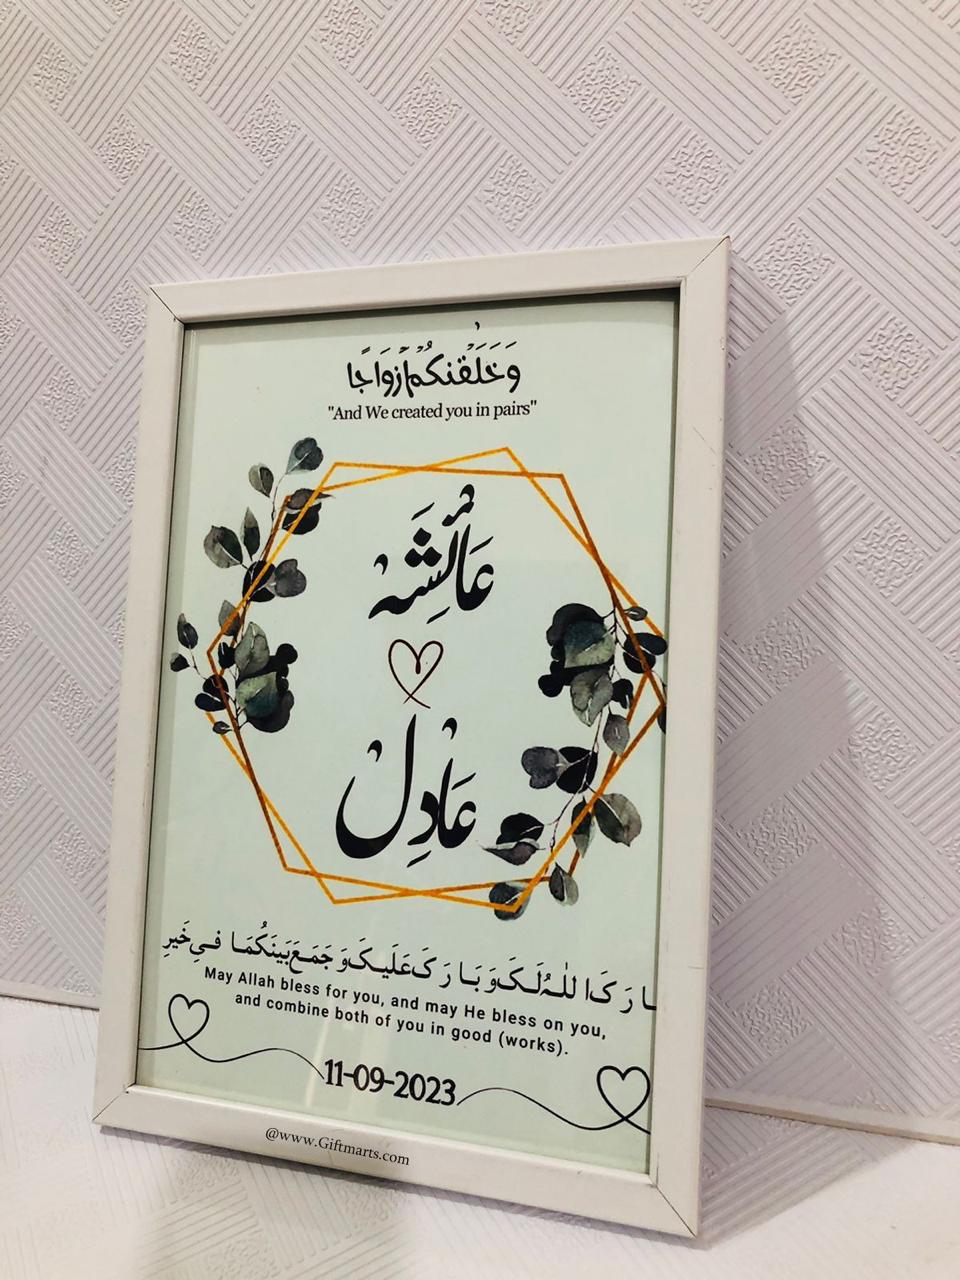 وَخَلَقْنٰكُمْ اَزْوَاجًا
"And We created you in pairs"
عَائِشَہ
عَادِل
بَارَکَ اللّٰہُ لَکَ وَ بَارَکَ عَلَیکَ وَ جَمَعَ بَینَکُمَا فِي خَیرٍ
May Allah bless for you, and may He bless on you,
and combine both of you in good (works).
11-09-2023
@www.Giftmarts.com